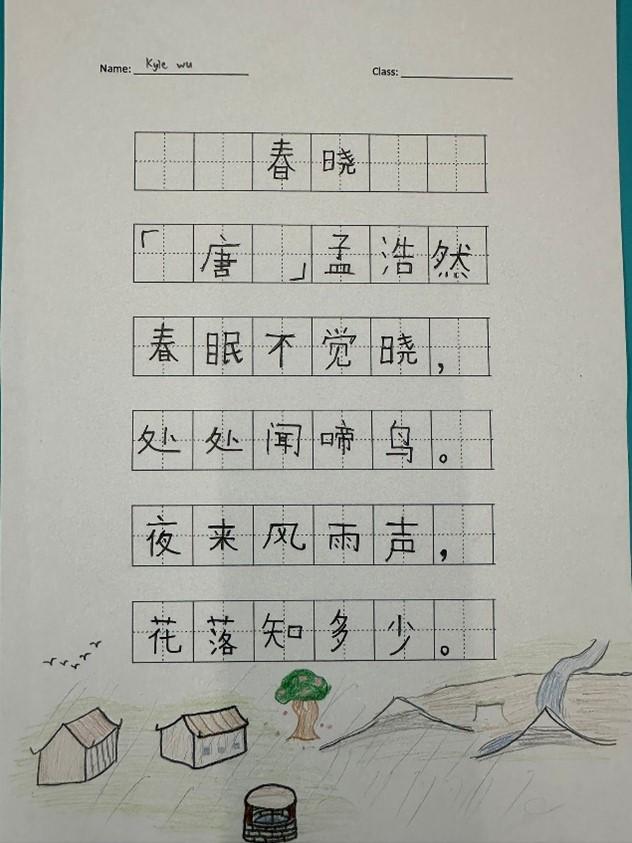 Name: Kyle wu Class:
春晓
「唐」孟浩然
春眠不觉晓，
处处闻啼鸟。
夜来风雨声，
花落知多少。